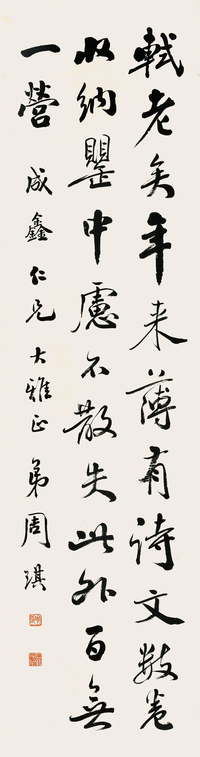 軾老矣年来薄有诗文数卷
收纳罂中慮不散失此外百無
一營 成鑫仁兄大雅正 弟周琪